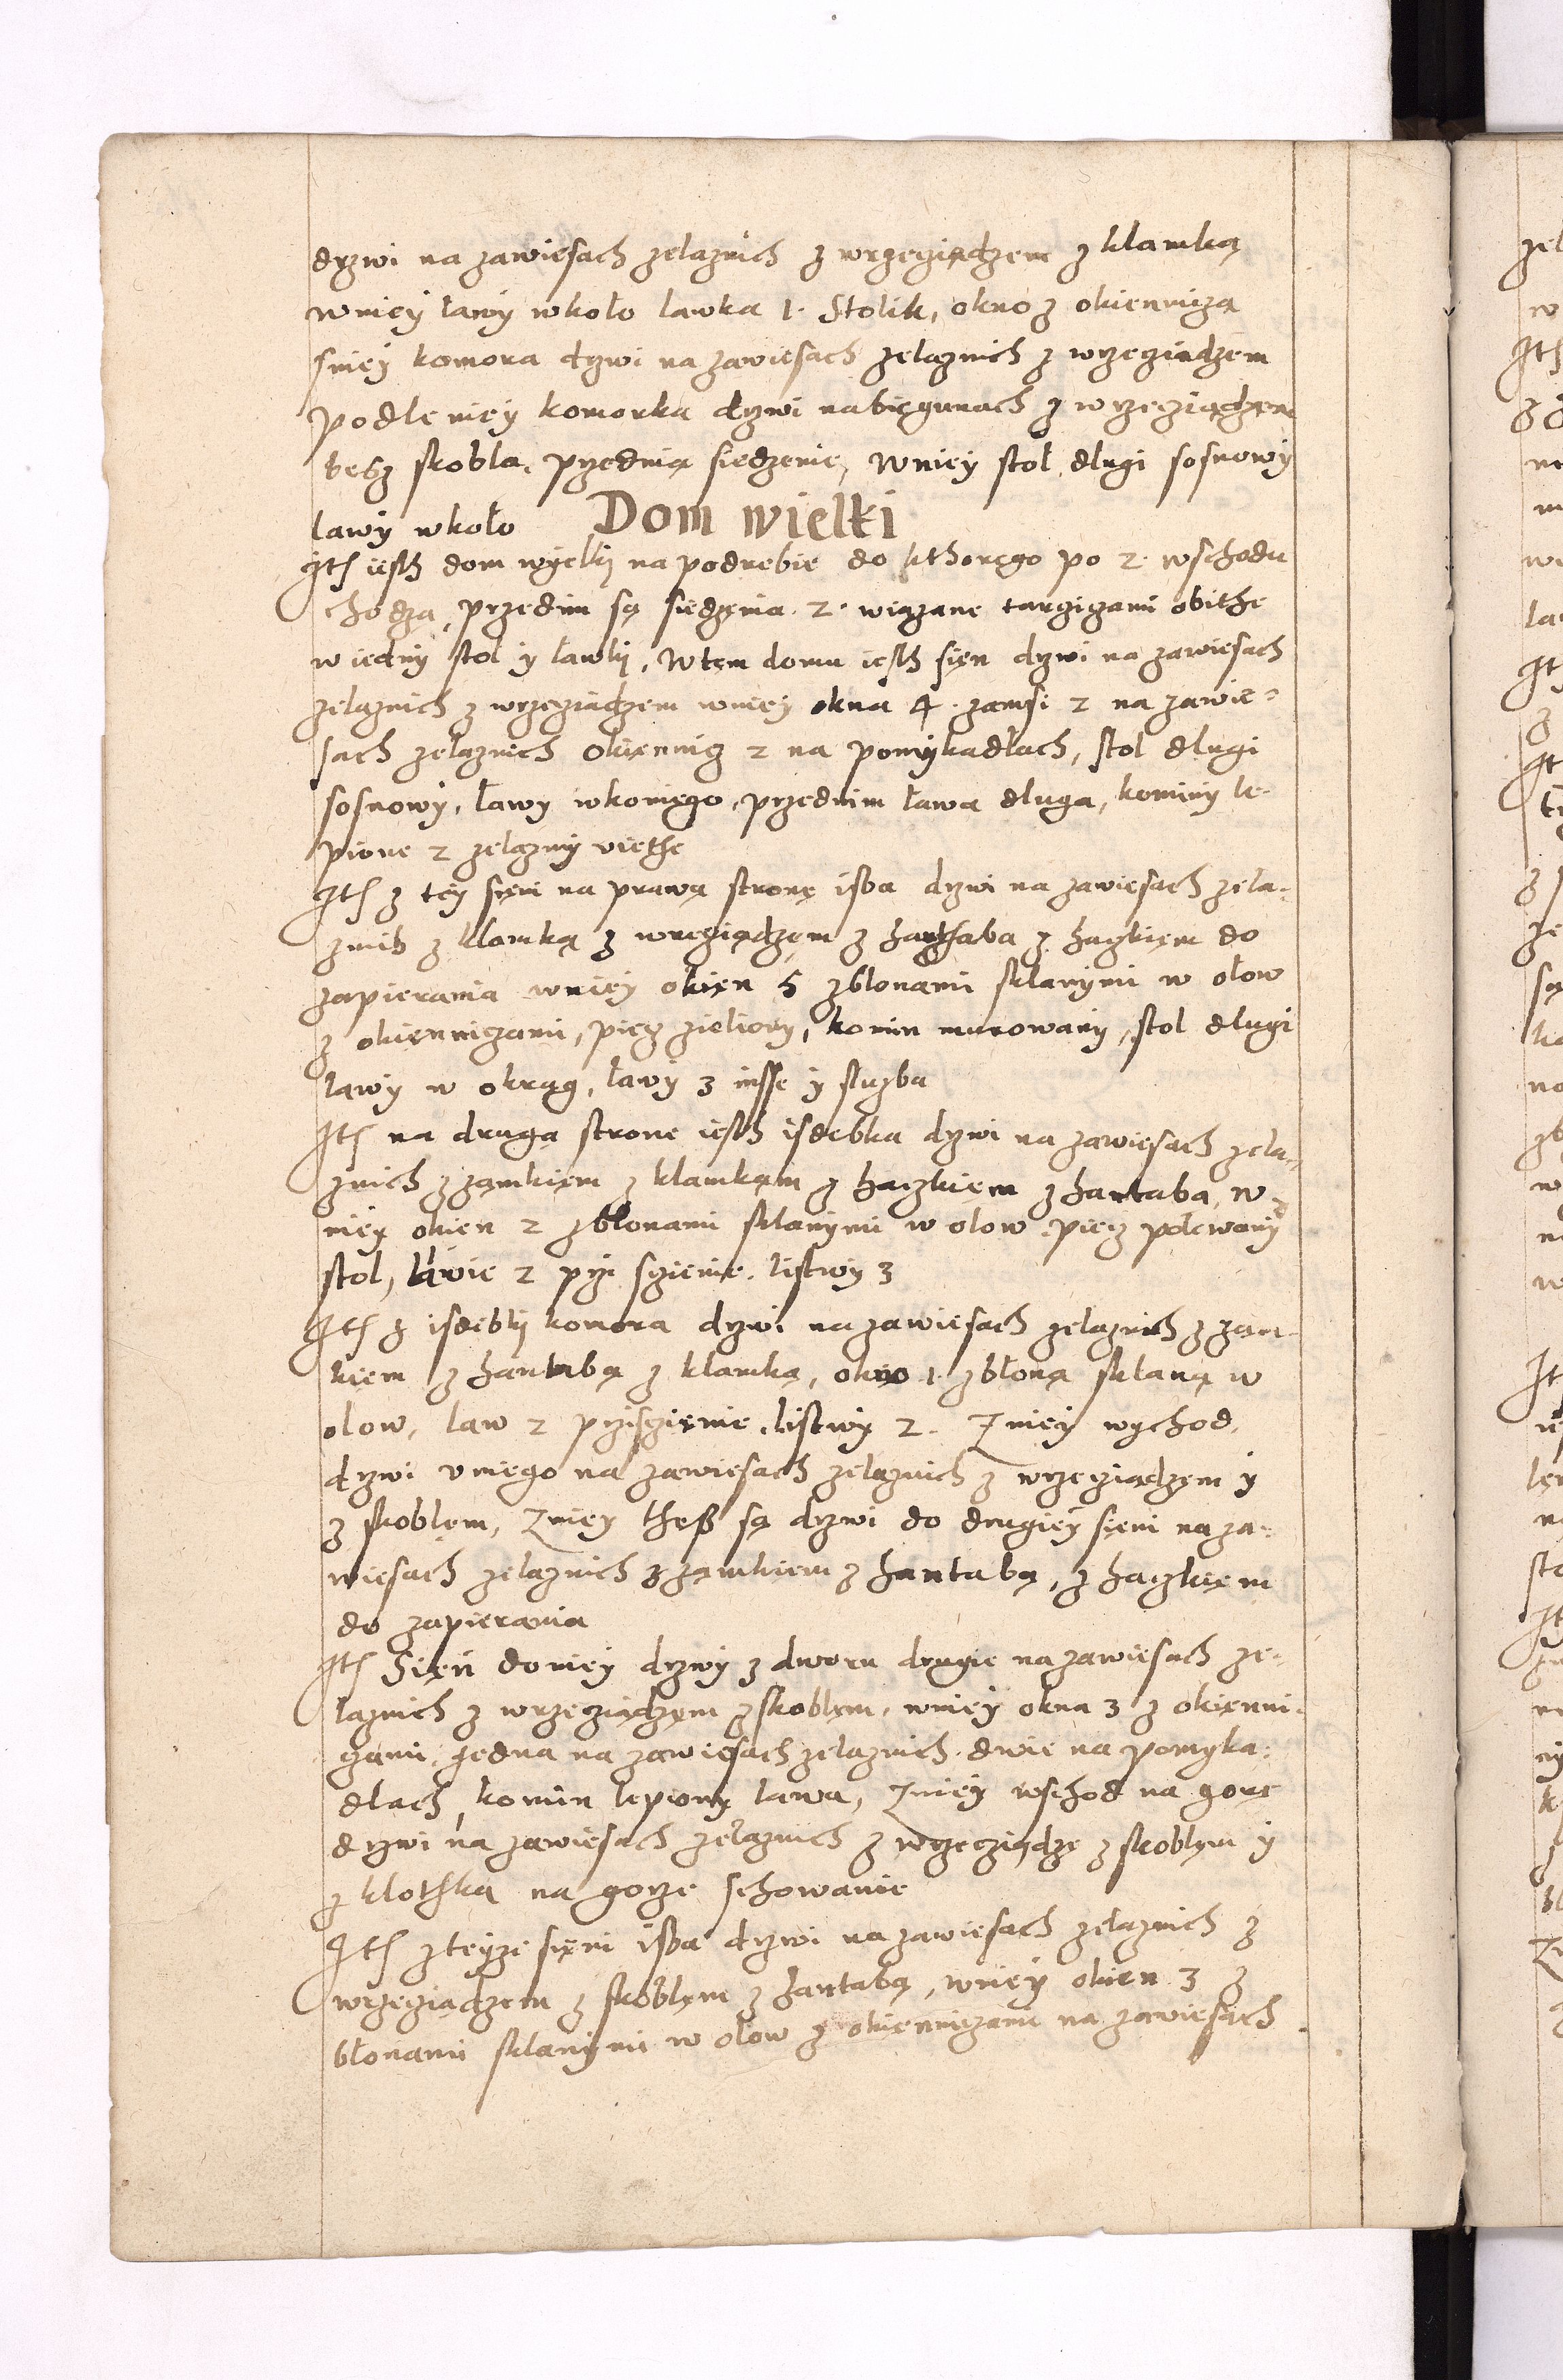 drzwi na zawiesach zelaznich z wrzeciądzem z klamką
wniey ławy wkoło lawka 1. Stolik, okno z okiennicza
sniey komora drzwi na zawiesach zelaznich z wrzeciądzem
podle niey komorka drzwi na biegunach z wrzeciądzem
besz skobla, przednią siedzenie, Wniey stoł dlugi sosnowy
lawy wkoło Dom wielki
Ith iesth dom wyelky na podrebie do kthoręgo po 2. wschodu
chodzą, przednim są siedzenia 2. wiązane tarczicami obithe
w iedny stol y ławky, W tem domu iesth sięn drzwi na zawiesach
zelaznich z wrzeciądzem wniey okna 4. zamsi 2 na zawie-
sach zelaznich okiennicz 2 na pomykadłach, stol dlugi
sosnowy, ławy wkoniego, przednim ława dluga, kominy le-
pione 2 zelazmy viethe
Ith z tey sięni na prawą stronę isba drzwi na zawiesach zela-
znich z klamką z wreciądzem z hanthaba z haczkiem do
zapierania wniey okięn 5 z błonami sklanymi w ołow
z okienniczami, piecz zieliony, komin murowany, stol dlugi
lawy w okrąg, ławy 3 insse y sluzba
Ith na drugą strone iesth isdebka drzwi na zawiesach zela-
znich z zamkięm z klamkąm z haczkiem z hantabą, w
niey okien 2 z błonami sklanymi w olow piecz polewany
stol, ławie 2 przi scienie. listwy 3
Ith z isdebky komora drzwi na zawiesach zelaznich z zam-
kiem z hantabą z klamką, okno 1. z błoną sklaną w
olow, law 2 przisczienie, listwy 2. Zniey wychod,
drzwi vniego na zawiesach zelaznich z wrzeciądzem y
z skoblęm, Zniey theß są drzwi do drugiey sieni na za-
wiesach zelaznich z zamkiem z hantabą, z haczkięm
do zapierania
Ith Sięń doniey drzwy z dworu drugie na zawiesach ze-
laznich z wrzeciądzęm z skoblęm, wniey okna 3 z okienni-
czami, Jedna na zawiesach zelaznich. dwie na pomyka-
dlach, komin lepiony lawa, Zniey wschod na gore
drzwi na zawiesach zelaznich z wrzeciądze z skoblęm y
z klothką na gorze schowanie
Ith z teyze sięni isba drzwi na zawiesach zelaznich z
wrzeciądzem z skoblęm z hantabą, wniey okien 3 z
błonami sklanymi w olow z okienniczami na zawiesach